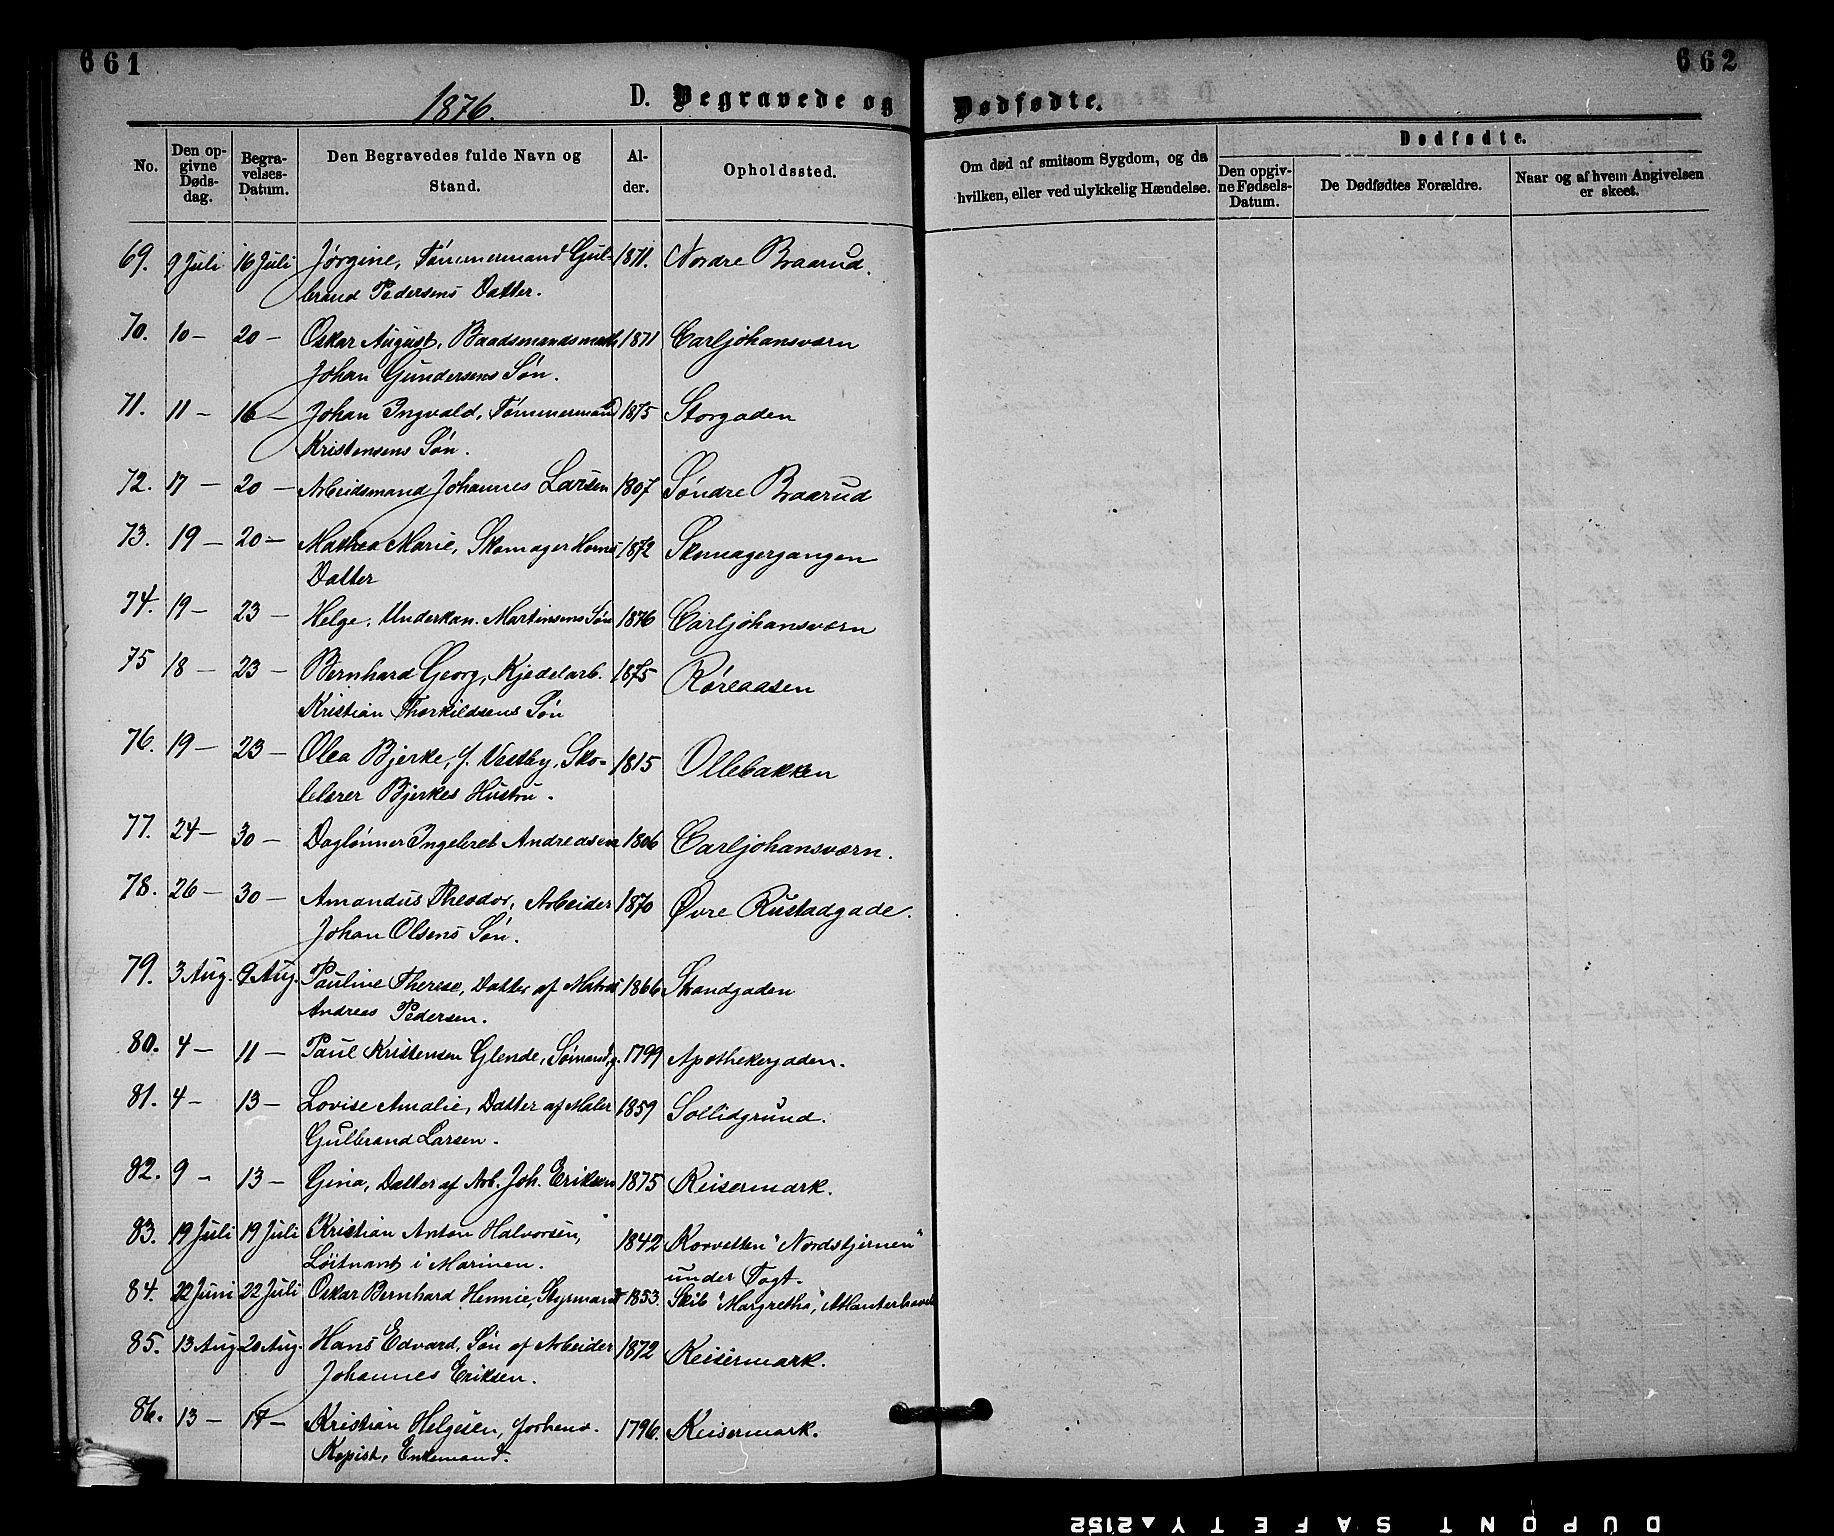 661
662
1876.
D. Begravede og Dødfødte.
No.
Den opgivne Dødsdag.
Begravelses-Datum.
Den Begravedes fulde Navn og Stand.
Alder.
Opholdssted.
Om død af smitsom Sygdom, og da hvilken, eller ved ulykkelig Hændelse.
Dødfødte.
Den opgivne Fødsels-Datum.
De Dødfødtes Forældre.
Naar og af hvem Angivelsen er skeet.
69. 9 Juli 16 Juli Jørgine, Tømmermand Gul- 1871. Nordre Braarud.
brand Pedersens Datter.
70. 10 — 20 — Oskar August, Baadsmandsmath 1871 Carljohansværn
Johan Gundersens Søn.
71. 11 — 16 — Johan Ingvald, Tømmermand 1875 Storgaden
Kristensens Søn.
72. 17 — 20 — Arbeidsmand Johannes Larsen 1807 Søndre Braarud
73. 19 — 20 — Mathea Marie, Skomager Horns 1872 Skomagergangen
Datter
74. 19 — 23 — Helge, Underkan. Martinsens Søn 1876 Carljohansværn
75 18 — 23 — Bernhard Georg, Kjedelarb. 1875 Røreaasen
Kristian Thorkildsens Søn
76. 19 — 23 — Olea Bjerke, f. Vestby, Sko- 1815 Ollebakken
lelærer Bjerkes Hustru.
77. 24 — 30 — Dagløнner Ingebret Andreasen 1806 Carljohansværn.
78. 26 — 30 — Amandus Theodor, Arbeider 1870 Øvre Rustadgade.
Johan Olsens Søn.
79. 3 Aug. 9 Aug. Pauline Therese, Datter af Matros 1866 Strandgaden
Andreas Pedersen.
80. 4 — 11 — Paul Kristensen Glende, Sømand, g. 1799 Apothekergaden.
81. 4 — 13 — Lovise Amalie, Datter af Maler 1859 Sollidgrund.
Gulbrand Larsen.
82. 9 - 13 — Gina, Datter af Arb. Joh. Eriksen 1875 Keisermark.
83. 19 Juli 19 Juli Kristian Anton Halvorsen, 1842 Korvetten "Nordstjernen"
Løitnant i Marinen. under Togt.
84. 22 Juni 22 Juli Oskar Bernhard Hennie, Styrmand 1853. Skib "Margretha", Atlanterhavet
85. 13 Aug 20 Aug. Hans Edvard, Søn af Arbeider 1872 Keisermark.
Johannes Eriksen.
86. 13 — 17 — Kristian Helgesen, forhenv. 1796. Keisermark.
Kopist, Enkemand.
DUPONT SAFETY 2152